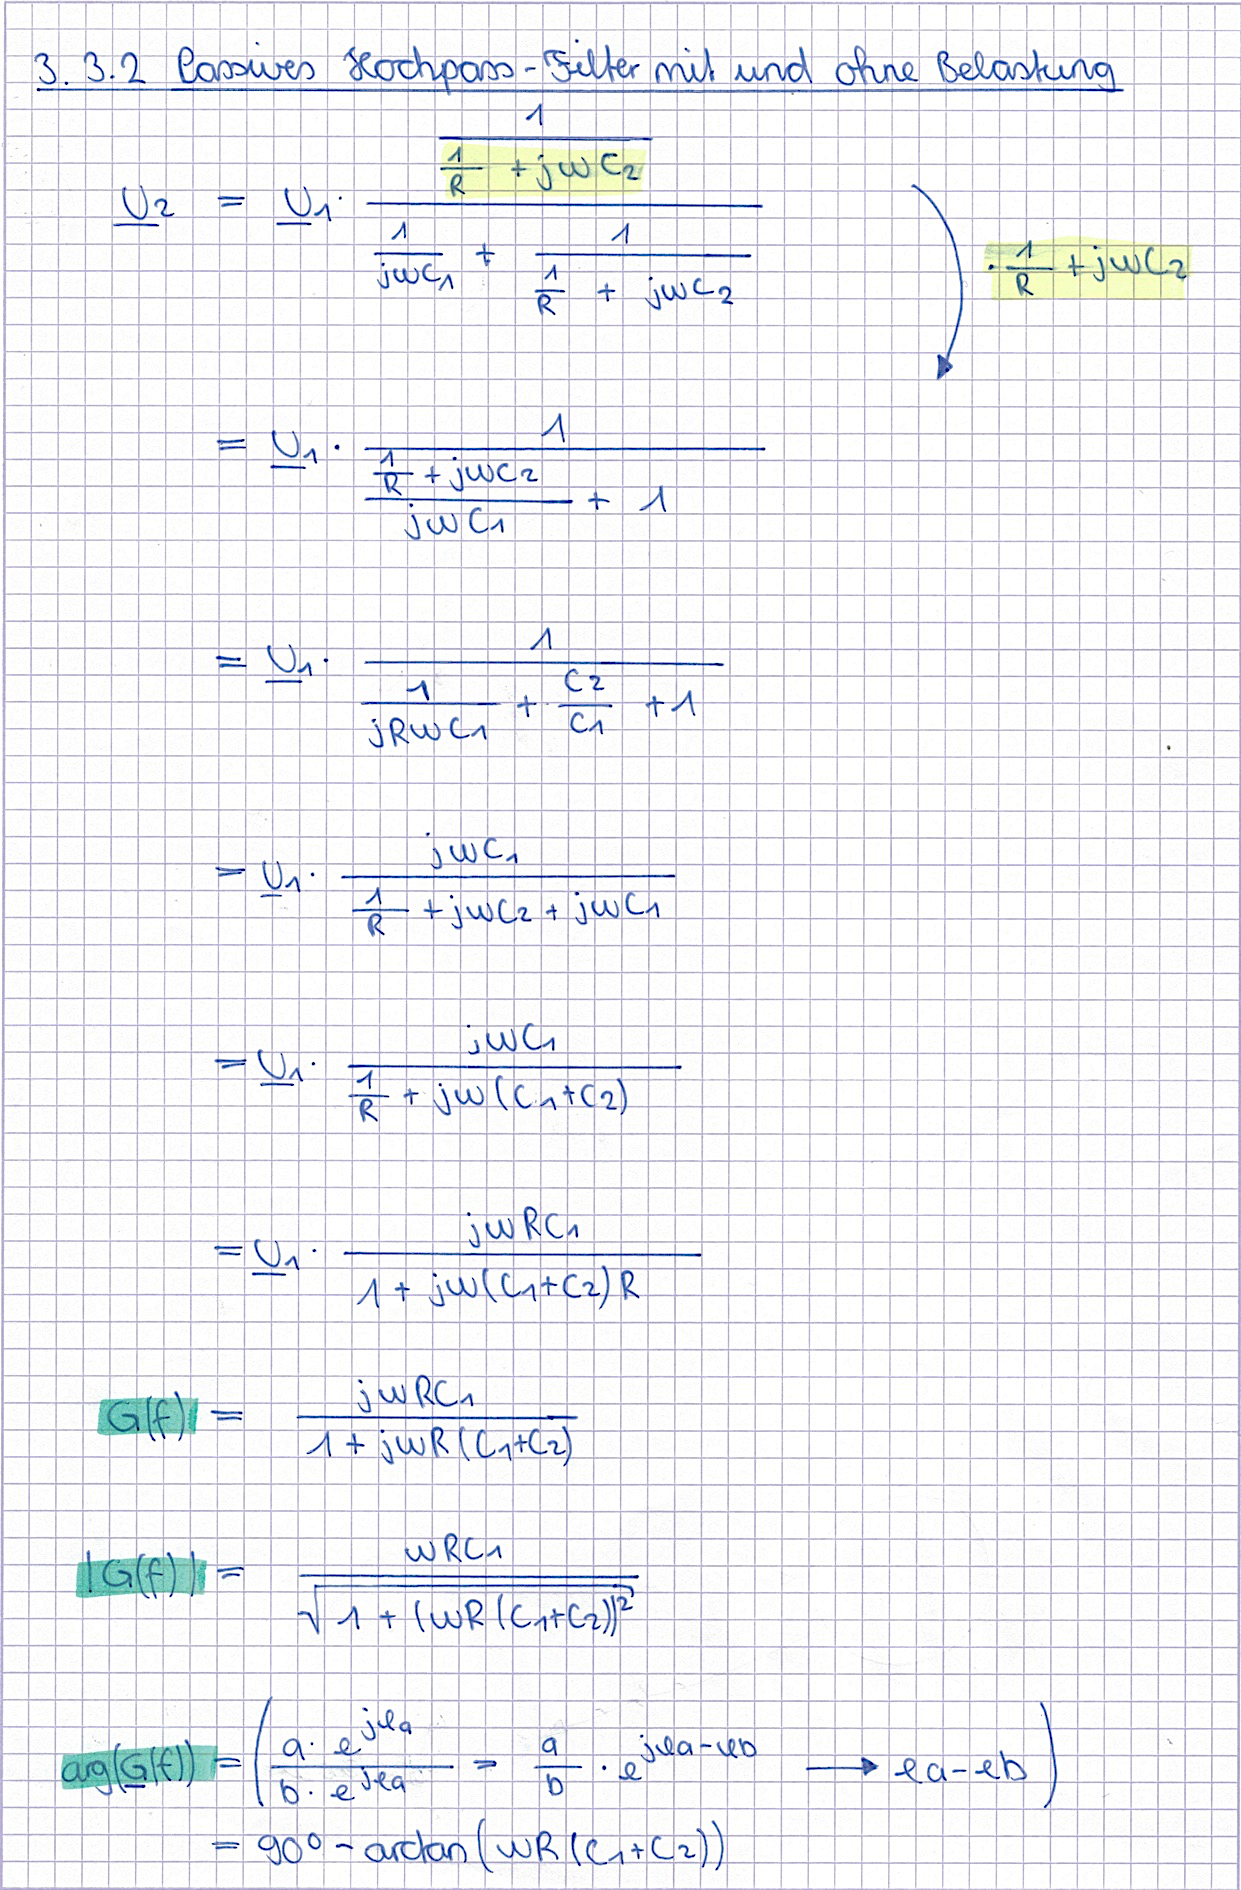 3.3.2 Passives Hochpass-Filter mit und ohne Belastung
U2 = U1 · (1 / (1/R + jωC2)) / (1/(jωC1) + 1/(1/R + jωC2))
· 1/R + jωC2
= U1 · 1 / ((1/R + jωC2)/(jωC1) + 1)
= U1 · 1 / (1/(jRωC1) + C2/C1 + 1)
= U1 · jωC1 / (1/R + jωC2 + jωC1)
= U1 · jωC1 / (1/R + jω(C1+C2))
= U1 · jωRC1 / (1 + jω(C1+C2)R)
G(f) = jωRC1 / (1 + jωR(C1+C2))
|G(f)| = ωRC1 / √(1 + (ωR(C1+C2))²)
arg(G(f)) = ((a · e^jφa) / (b · e^jφa) = a/b · e^jφa-φb → φa-φb)
= 90° - arctan(ωR(C1+C2))